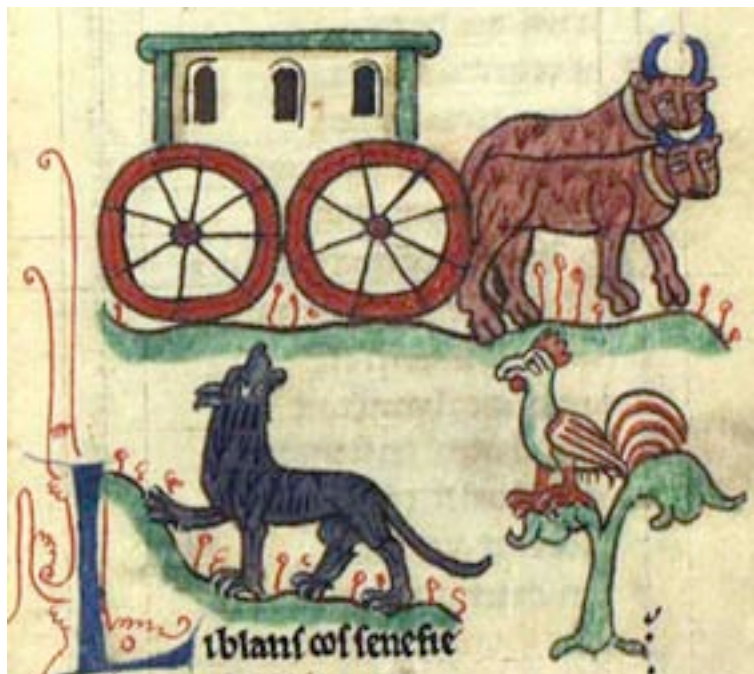 Li blanſ coſ ſenefie